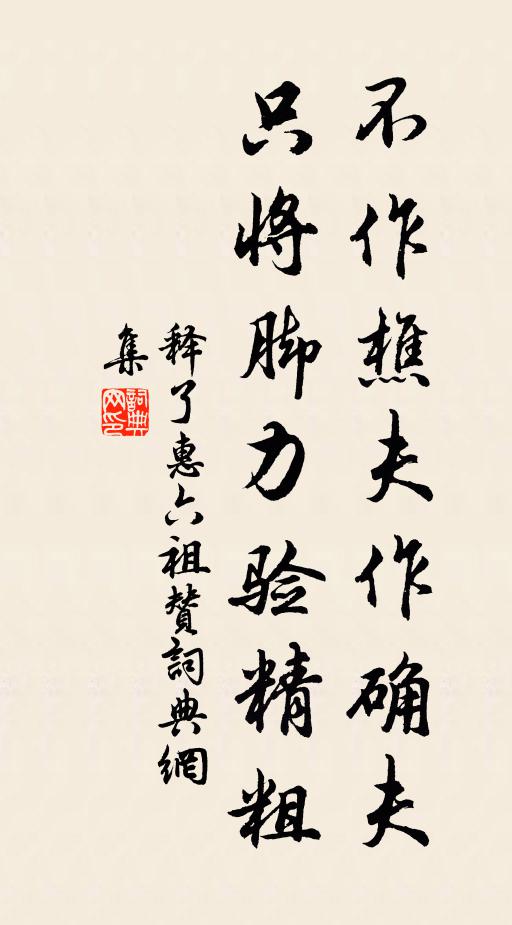 不作樵夫作确夫
只将脚力验精粗
释了惠六祖赞詞典網
集
詞典网印